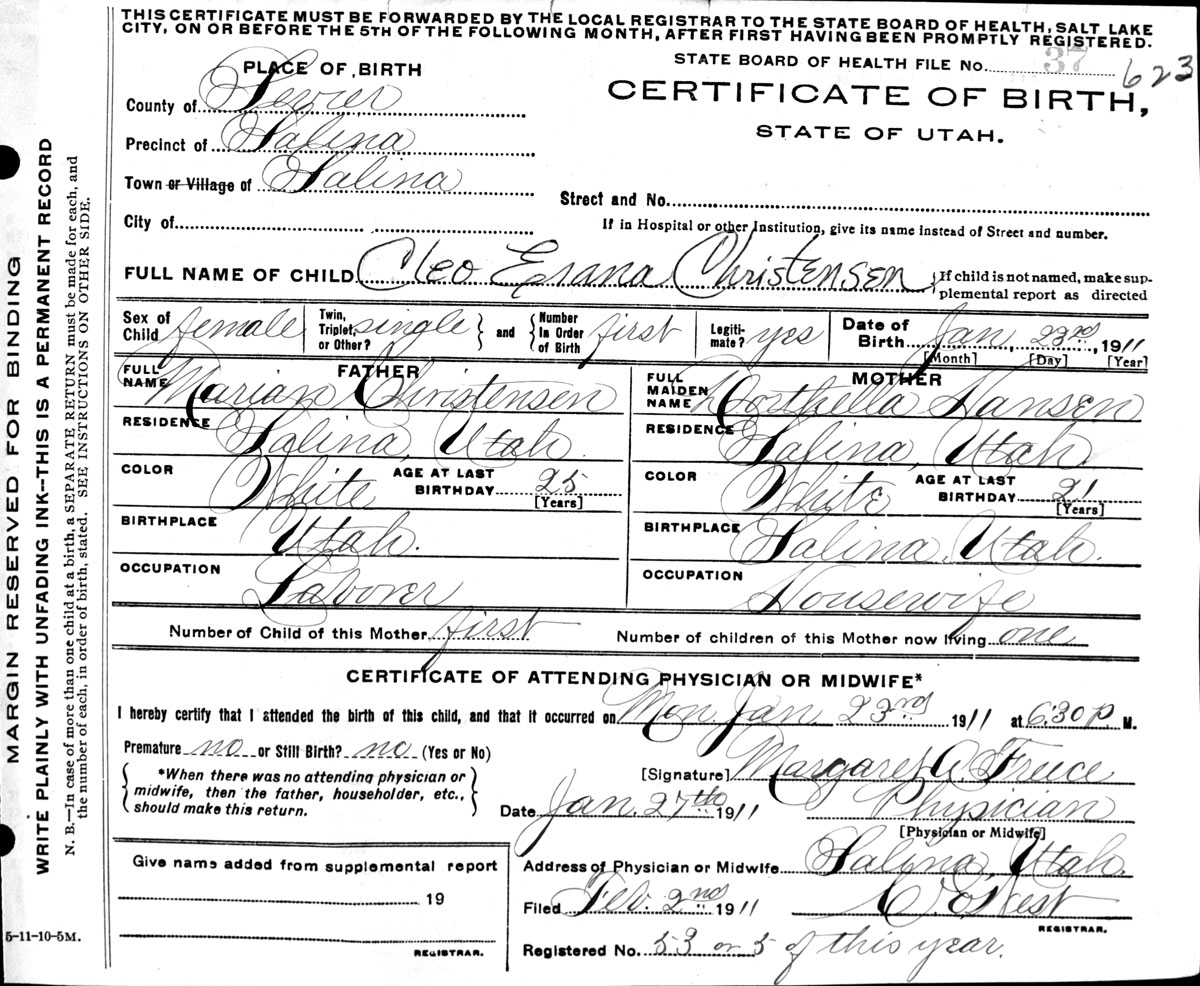 THIS CERTIFICATE MUST BE FORWARDED BY THE LOCAL REGISTRAR TO THE STATE BOARD OF HEALTH, SALT LAKE
CITY, ON OR BEFORE THE 5TH OF THE FOLLOWING MONTH, AFTER FIRST HAVING BEEN PROMPTLY REGISTERED.
STATE BOARD OF HEALTH FILE NO. 37 623
PLACE OF BIRTH
CERTIFICATE OF BIRTH,
STATE OF UTAH.
County of Sevier
Precinct of Salina
Town or Village of Salina
Street and No.
City of
If in Hospital or other Institution, give its name instead of Street and number.
FULL NAME OF CHILD Cleo Erana Christensen
If child is not named, make sup-
plemental report as directed
Sex of Child female
Twin, Triplet, or Other? single
and
Number In Order of Birth first
Legiti-mate? yes
Date of Birth Jan, 23rd, 1911
[Month] [Day] [Year]
FATHER
FULL NAME Marian Christensen
RESIDENCE Salina, Utah.
COLOR White AGE AT LAST BIRTHDAY 25
[Years]
BIRTHPLACE Utah.
OCCUPATION Laborer
MOTHER
FULL MAIDEN NAME Hansen
RESIDENCE Salina, Utah.
COLOR White AGE AT LAST BIRTHDAY 21
[Years]
BIRTHPLACE Salina, Utah.
OCCUPATION Housewife
Number of Child of this Mother first Number of children of this Mother now living one
CERTIFICATE OF ATTENDING PHYSICIAN OR MIDWIFE*
I hereby certify that I attended the birth of this child, and that it occurred on Mon Jan. 23rd 1911 at 6:30 P. M.
Premature no or Still Birth? no (Yes or No)
*When there was no attending physician or
midwife, then the father, householder, etc.,
should make this return.
[Signature] Margaret A. Freece
Date Jan. 27th 1911 Physician
[Physician or Midwife]
Give name added from supplemental report
19
REGISTRAR.
Address of Physician or Midwife Salina, Utah.
Filed Feb. 2nd 1911 West
REGISTRAR.
Registered No. 53 or 5 of this year.
MARGIN RESERVED FOR BINDING
WRITE PLAINLY WITH UNFADING INK--THIS IS A PERMANENT RECORD
N. B.—In case of more than one child at a birth, a SEPARATE RETURN must be made for each, and
the number of each, in order of birth, stated. SEE INSTRUCTIONS ON OTHER SIDE.
5-11-10-5M.